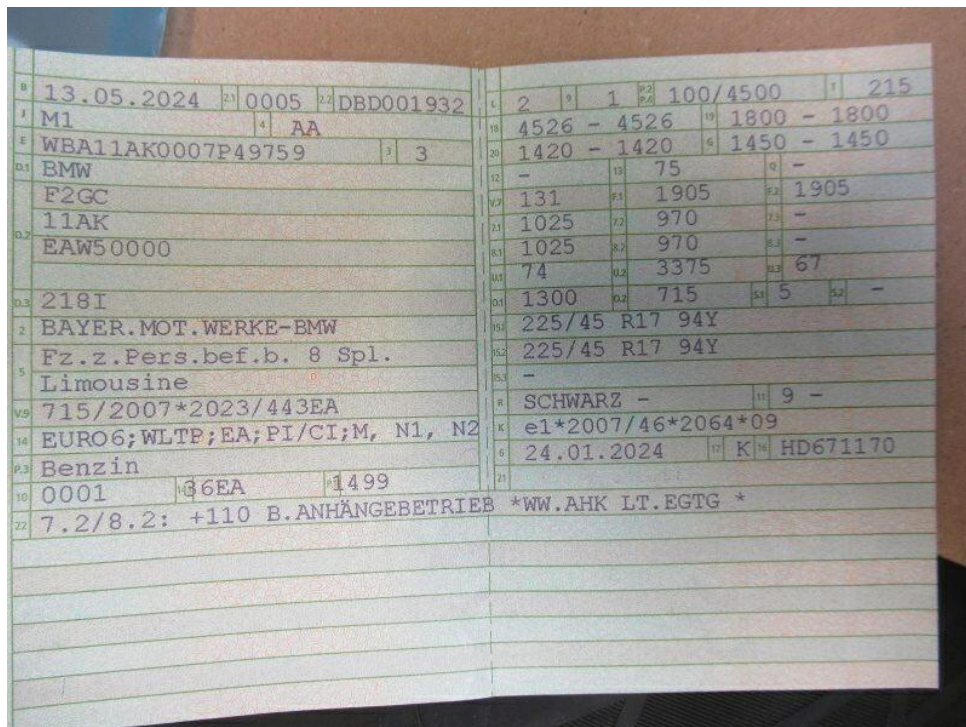 B 13.05.2024 2.1 0005 2.2 DBD001932
J M1 4 AA
E WBA11AK0007P49759 3 3
D.1 BMW
F2GC
D.2 11AK
EAW50000
D.3 218I
2 BAYER.MOT.WERKE-BMW
Fz.z.Pers.bef.b. 8 Spl.
5 Limousine
V.9 715/2007*2023/443EA
14 EURO6;WLTP;EA;PI/CI;M, N1, N2
P.3 Benzin
10 0001 36EA 1499
L 2 9 1 P.2 P.4 100/4500 T 215
18 4526 - 4526 19 1800 - 1800
20 1420 - 1420 G 1450 - 1450
12 - 13 75 Q -
V.7 131 F.1 1905 F.2 1905
7.1 1025 7.2 970 7.3 -
8.1 1025 8.2 970 8.3 -
U.1 74 U.2 3375 U.3 67
O.1 1300 O.2 715 S.1 5 S.2 -
15.1 225/45 R17 94Y
15.2 225/45 R17 94Y
15.3 -
R SCHWARZ - 11 9 -
K e1*2007/46*2064*09
6 24.01.2024 17 K 16 HD671170
21
22 7.2/8.2: +110 B.ANHÄNGEBETRIEB *WW.AHK LT.EGTG *